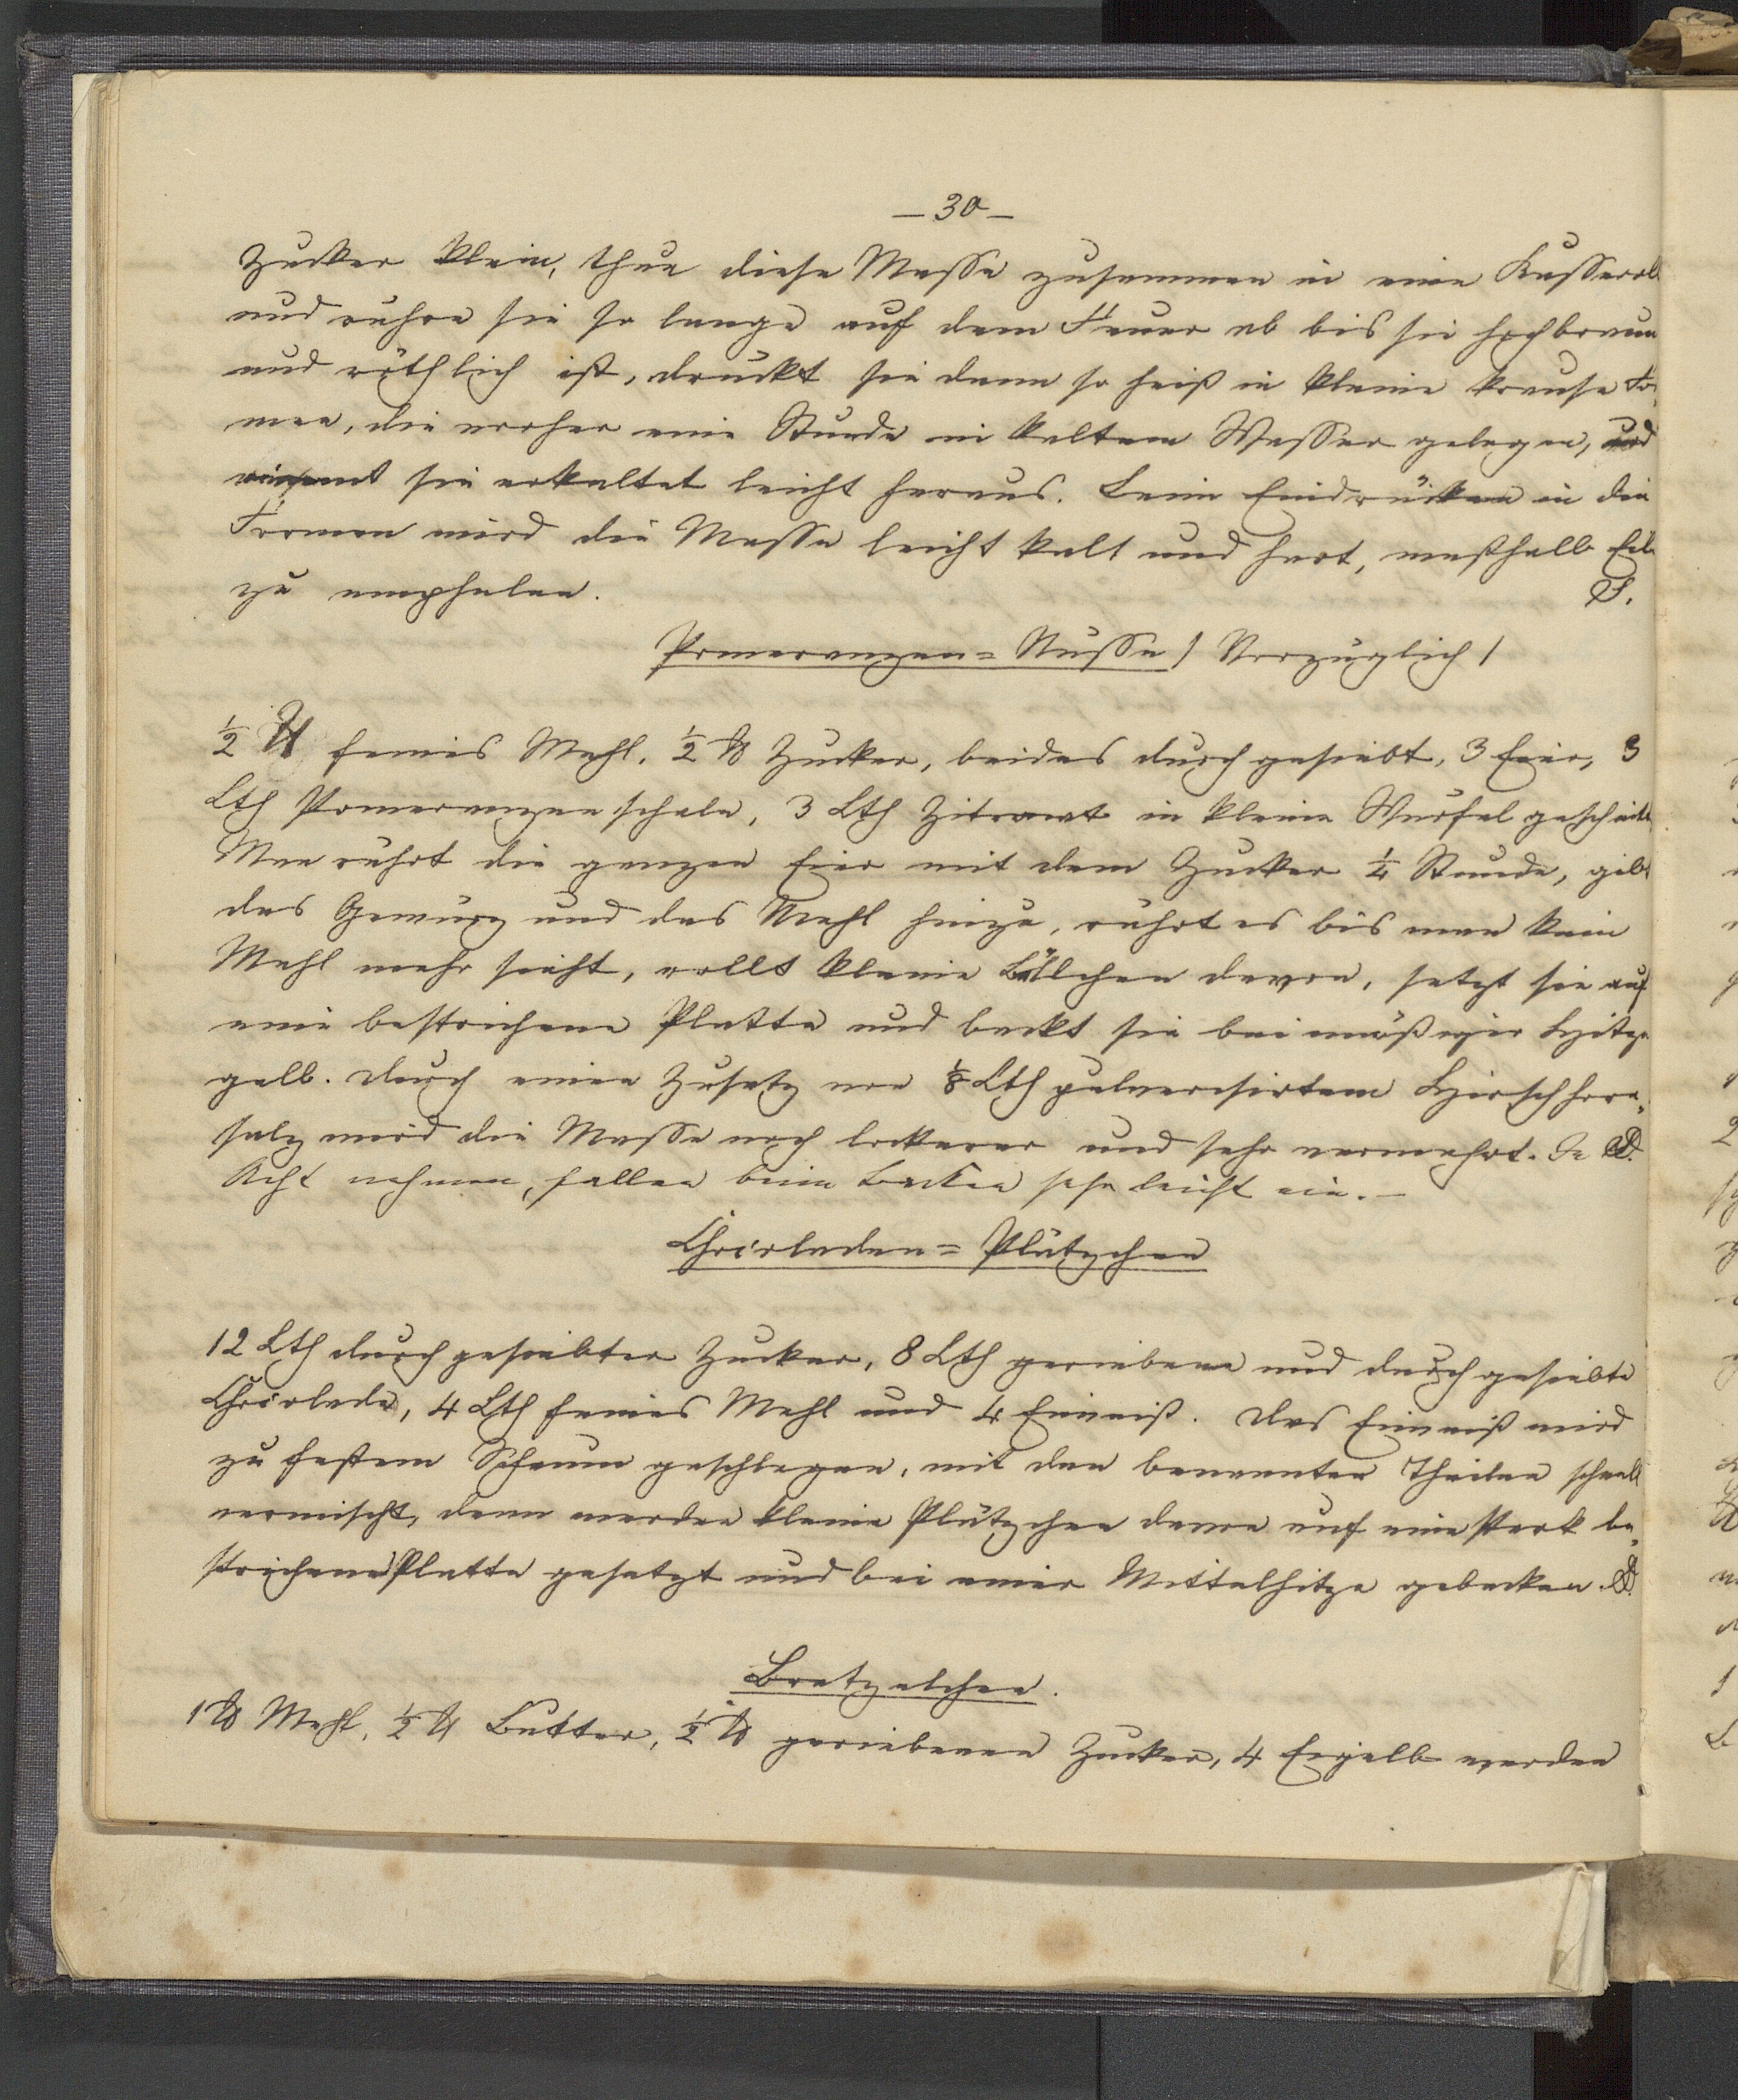 — 30 —
Zucker klein, thue diese Masse zusammen in eine Kasserol
und rühre sie so lange auf dem Feuer ab bis sie hochbraun
und röthlich ist, drückt sie dann so heiß in kleine krause For„
men, die vorher eine Stunde in kaltem Wasser gelegen, und
nimmt sie erkaltet leicht heraus. Beim Eindrücken in die
Formen wird die Masse leicht kalt und hart, weßhalb Eile
zu empfehlen.
Pomeranzen=Nüsse / Vorzüglich /
½ ℔ feines Mehl, ½ ℔ Zucker, beides durchgesiebt, 3 Eier, 3
Lth Pomeranzenschale, 3 Lth Zitronat in kleine Würfel geschnitt
Man rührt die ganzen Eier mit dem Zucker ¼ Stunde, gibt
das Gewürz und das Mehl hinzu, rührt es bis man kein
Mehl mehr sieht, rollt kleine Bällchen davon, setzt sie auf
eine bestrichene Platte und backt sie bei mäßiger Hitze
gelb. Durch einen Zusatz von ⅛ Lth pulverisirtem Hirschhorn„
salz wird die Masse noch lockerer und sehr vermehrt. In
Acht nehmen, fallen beim Backen sehr leicht ein. —
Chocoladen=Plätzchen
12 Lth durchgesiebter Zucker, 8 Lth geriebene und durchgesiebte
Chocolade, 4 Lth feines Mehl und 4 Eiweiß. Das Eiweiß wird
zu festem Schaum geschlagen, mit den benannten Theilen schnell
vermischt, dann werden kleine Plätzchen davon auf eine stark be„
strichene Platte gesetzt und bei einer Mittelhitze gebacken.
Bretzelchen.
1 ℔ Mehl, ½ ℔ Butter, ½ ℔ geriebenen Zucker, 4 Eigelb werden